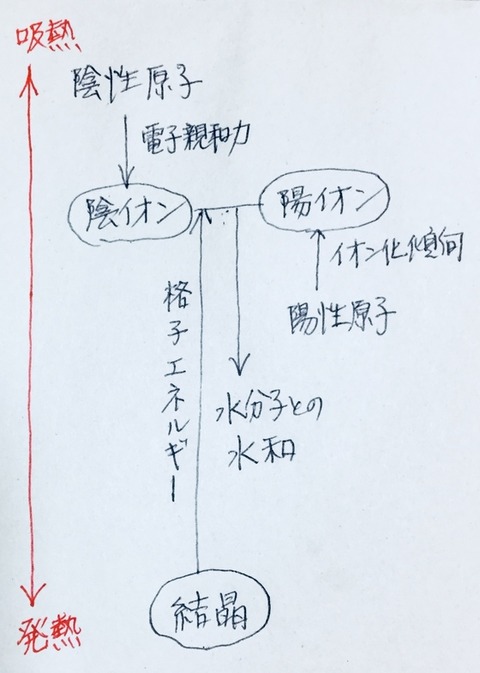 吸熱
陰性原子
電子親和力
陰イオン
陽イオン
イオン化傾向
陽性原子
格子エネルギー
水分子との
水和
結晶
発熱